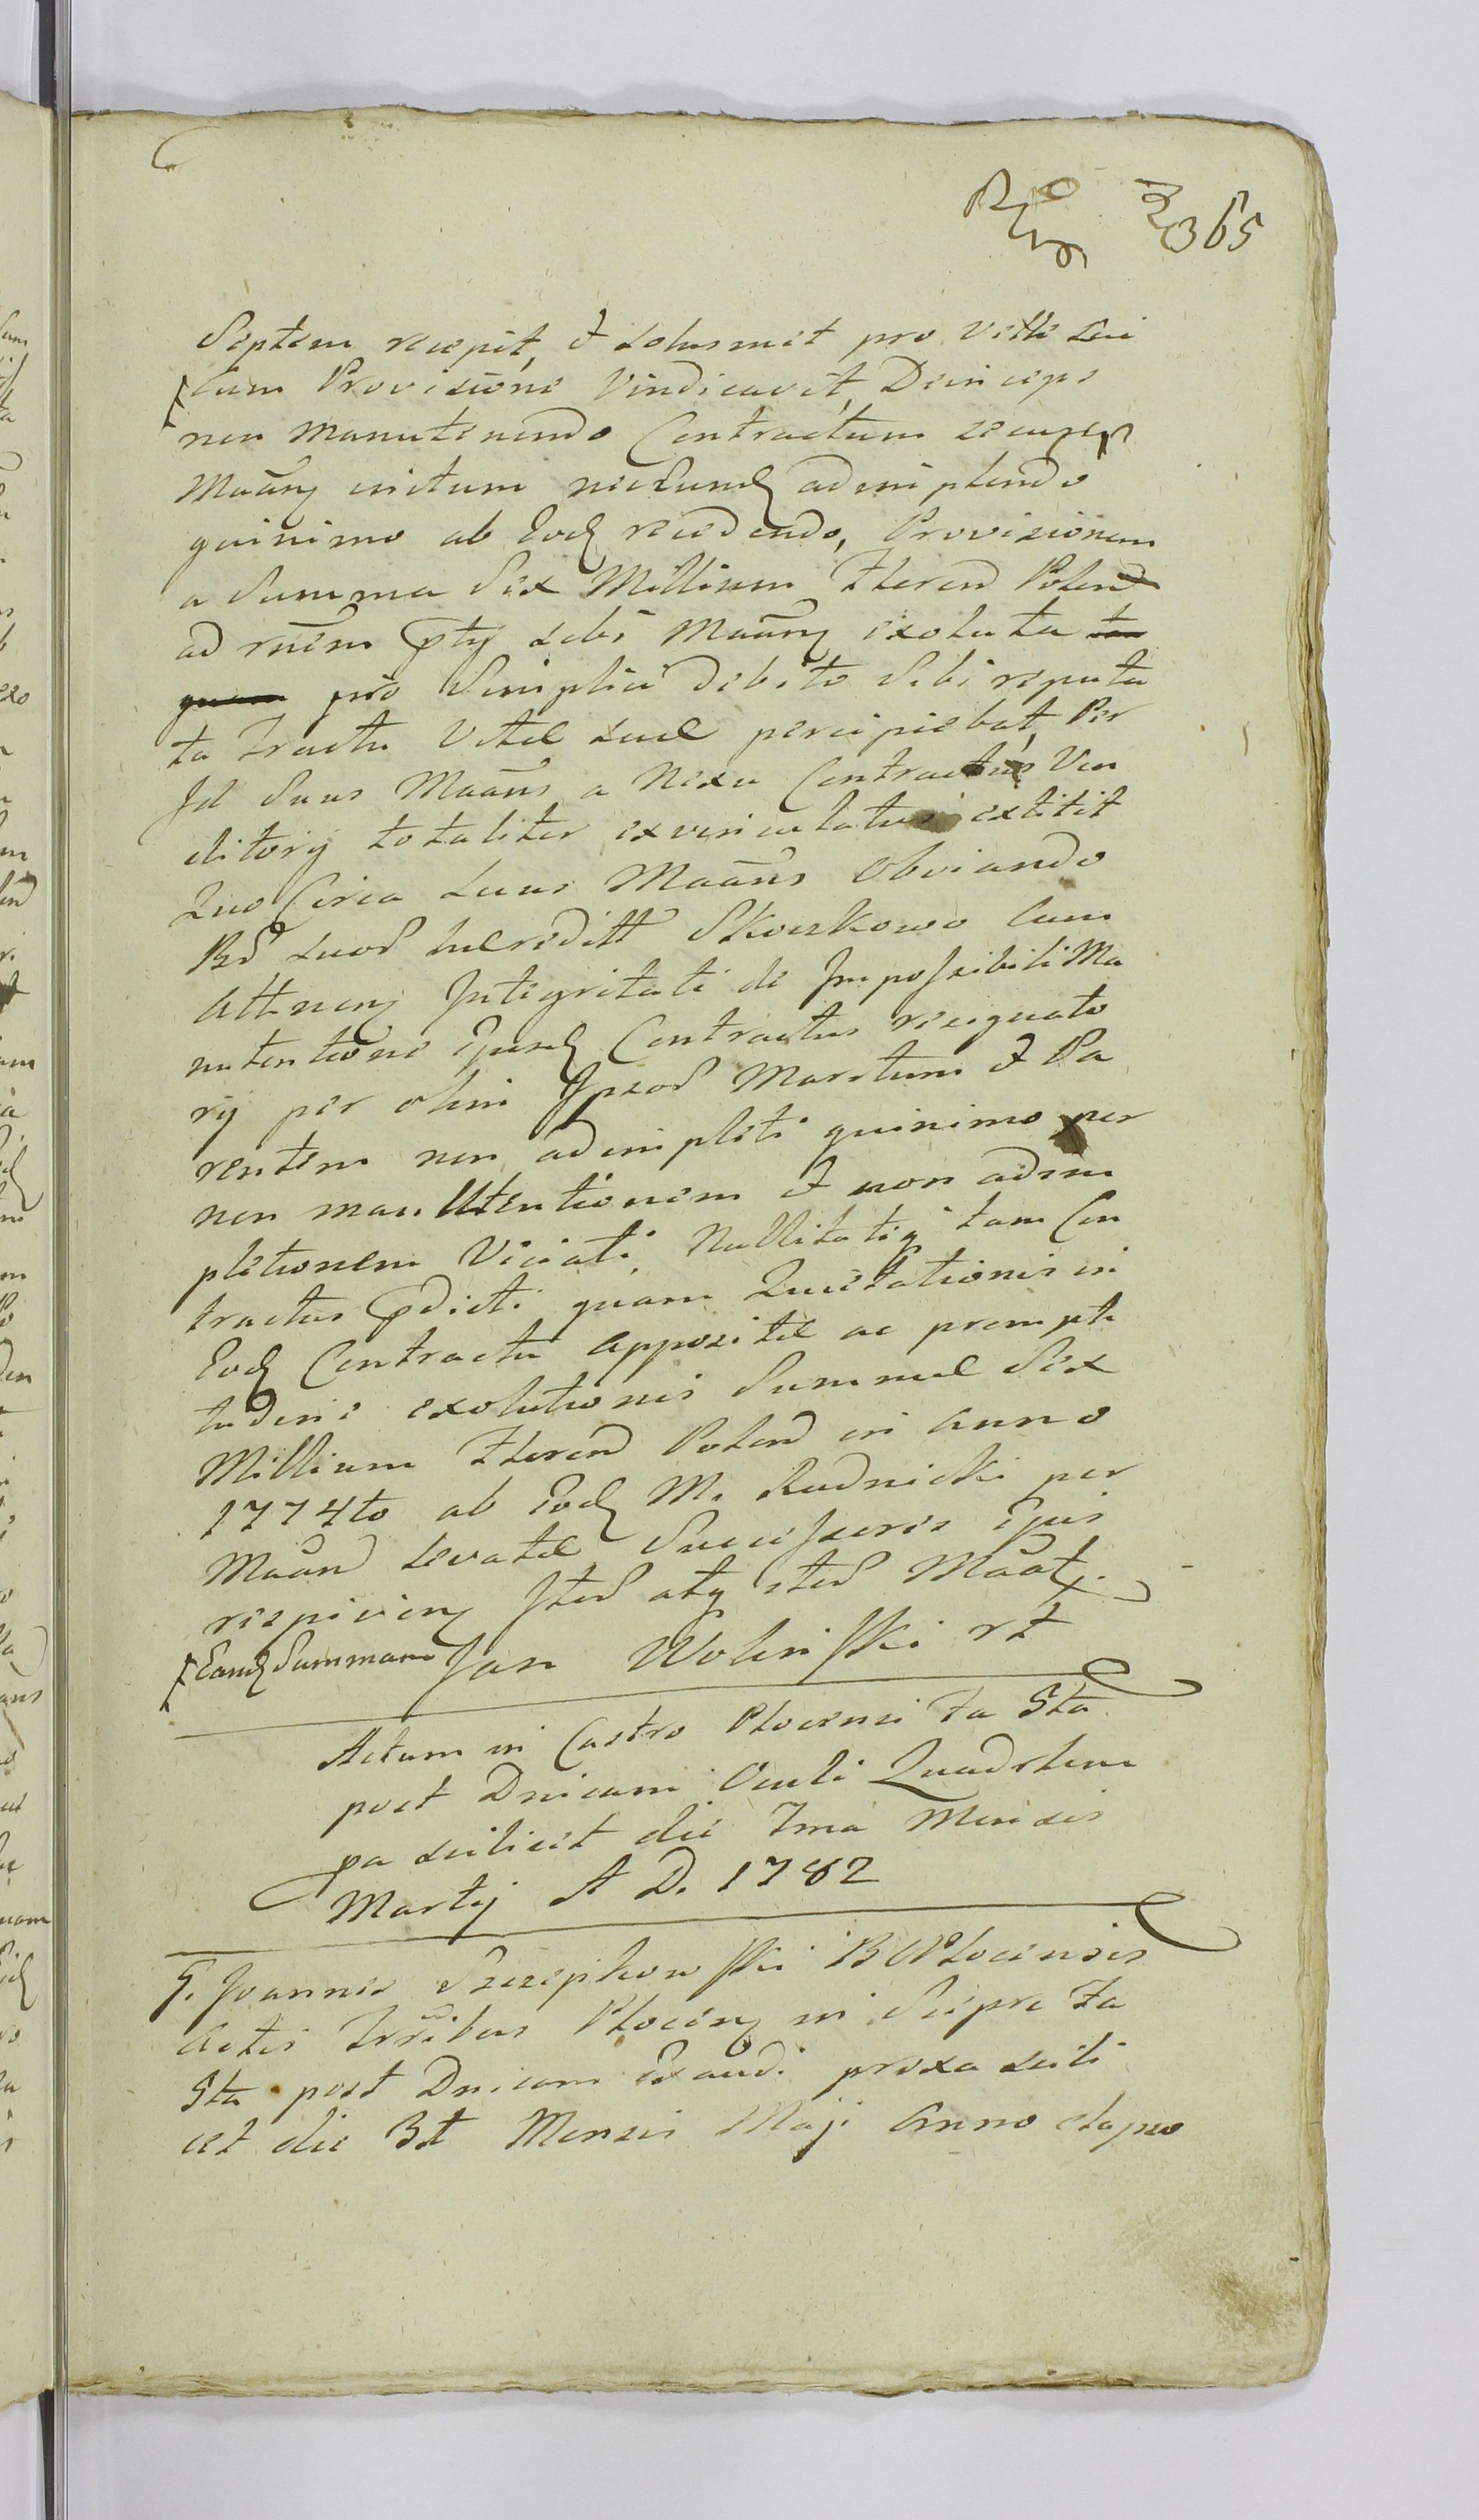 365
Septem recepit, et solusmet pro Velle Sui
Cum Provisione Vindicavit, Deinceps
non Manutenendo Contractum secum
Maãnq initum necEundq adimplendo
quinimo ab Eodq recedendo, Provisionem
a Summa Sex Millium Floren Polon
ad rñem pty sibi Maãnq exoluta tan
quam pro Simplici debito Sibi reputa
ta Tractu Vitæ suæ percipiebat, Per
Id Suus Maãns a Nexu Contractus Ven
ditorij totaliter exvinculatus extitit
Quo Circa suus Maãns Obviando
Bd suor hæreditt Skoszkowo Cum
Attnenq Integritati de Impossibili Ma
nutentione Ejusdq Contractus resignato
rij per olim Ipsor Maritum et Pa
rentem non adimpleti quinimo per
non manutentionem et non adim
pletionem Viciati, Nullitatiq tam Con
tractus pdicti quam Quietationis in
Eodq Contractu Appositæ ac prompti
tudine exolutionis Summæ Sex
Millium Floren Polon in Anno
1774to ab Eodq M. Rudnicki per
Maãn levatæ Successores Ejus
respicienq Ited atq sted Maãt.
Eandq Summam Jan Woliński rt
Actum in Castro Plocensi Fa 5ta
post Dnicam Oculi Quadrlem
pa scilicet die 7ma Mensis
Martij A D. 1782
G. Joannes Szczepkowski BCPlocensis
Actis Trribus Plocenq in Sierpc Fa
5ta post Dnicam Exaudi proxa scili
cet die Mensis Maji Anno